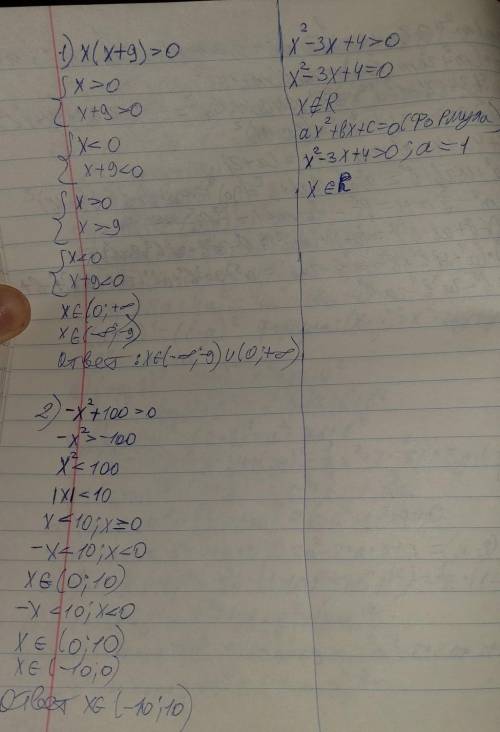 1) x(x+9)>0
{ x>0
x+9>0
{ x<0
x+9<0
{ x>0
x>9
{ x<0
x+9<0
x∈(0;+∞)
x∈(-∞;-9)
Ответ: x∈(-∞;-9)∪(0;+∞)
2) -x²+100>0
-x²>-100
x²<100
|x|<10
x<10; x≥0
-x<10; x<0
x∈(0;10)
-x<10; x<0
x∈(0;10)
x∈(-10;0)
Ответ x∈(-10;10)
x²-3x+4>0
x²-3x+4=0
x∉R
ax²+bx+c=0(Формула
x²-3x+4>0; a=1
x∈R